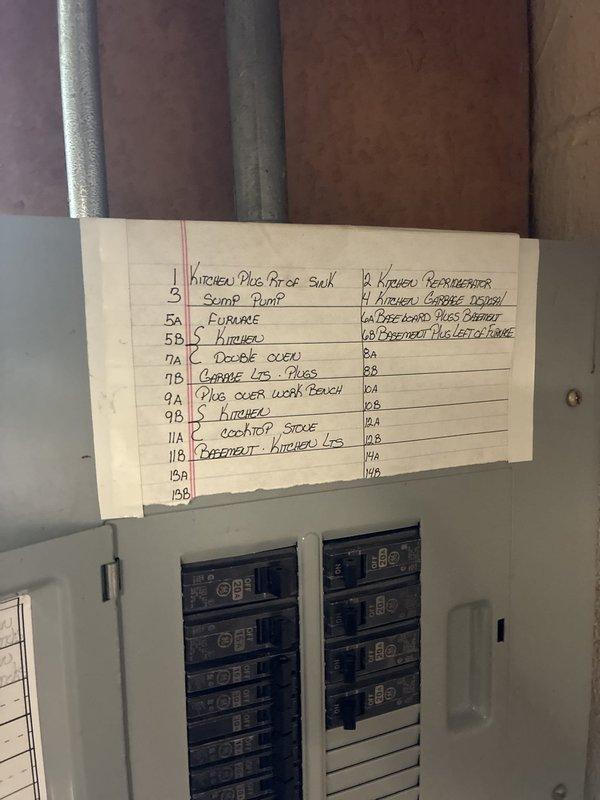 1 KITCHEN PLUG RT OF SINK 2 KITCHEN REFRIGERATOR
3 SUMP PUMP 4 KITCHEN GARBAGE DISPOSAL
5A FURNACE 6A BASEBOARD PLUGS BASEMENT
5B KITCHEN 6B BASEMENT PLUG LEFT OF FURNACE
7A DOUBLE OVEN 8A
7B GARAGE LTS. PLUGS 8B
9A PLUG OVER WORK BENCH 10A
9B KITCHEN 10B
11A COOKTOP STOVE 12A
11B BASEMENT. KITCHEN LTS 12B
13A 14A
13B 14B
OFF 20A
ON OFF
OFF
ON OFF
OFF
ON OFF
OFF
ON OFF
OFF
OFF
OFF